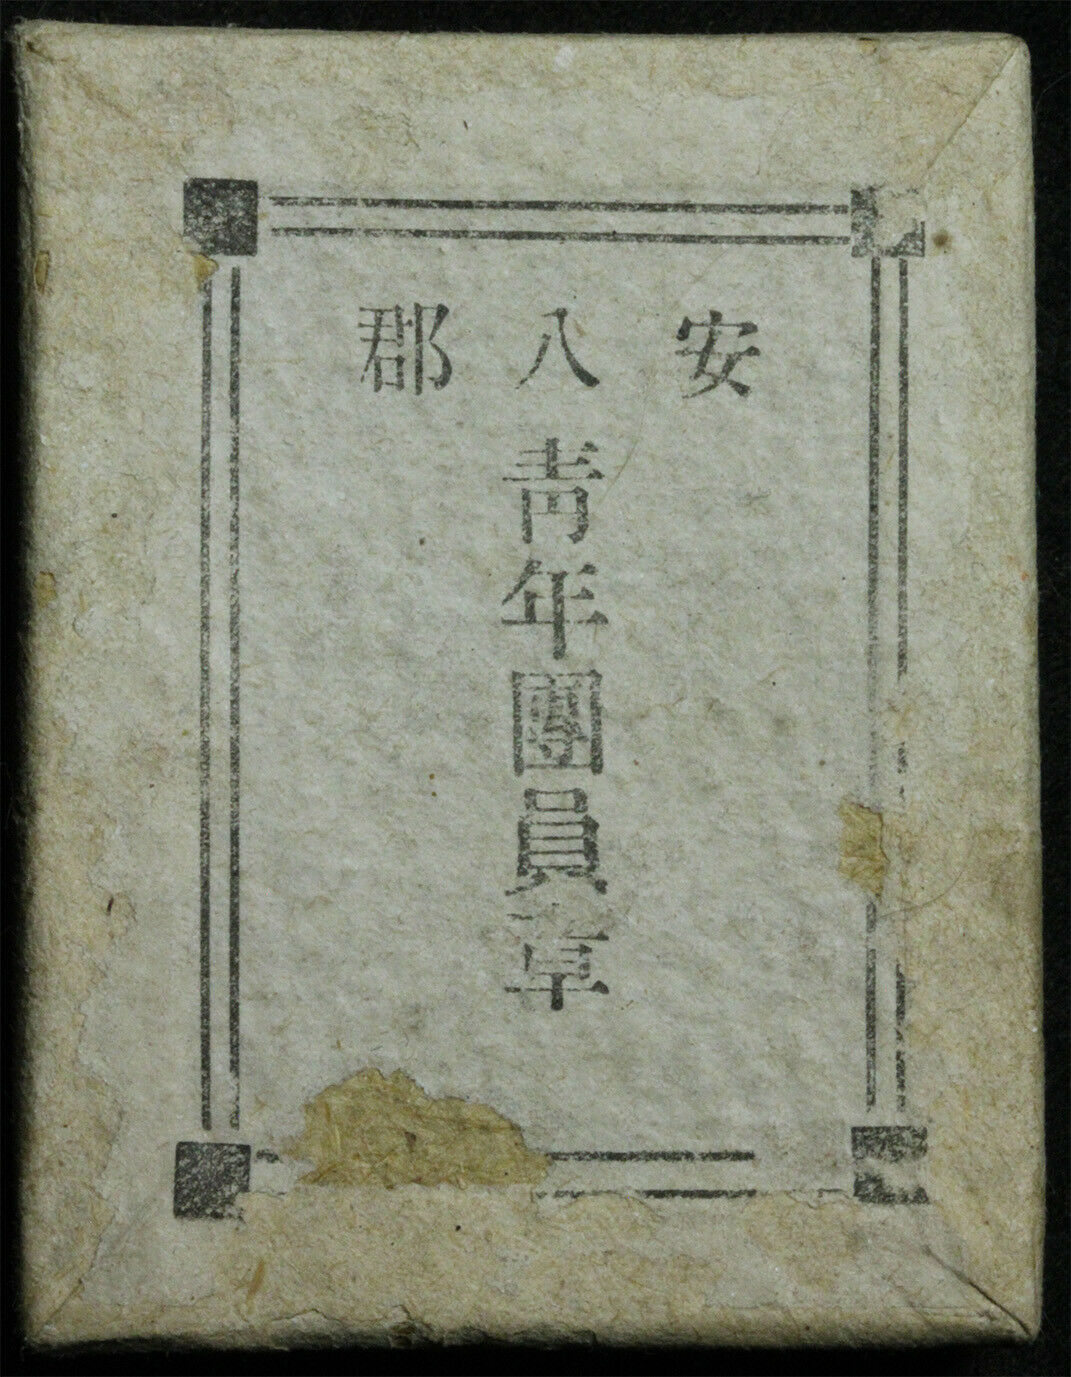 安八郡
靑年團員章